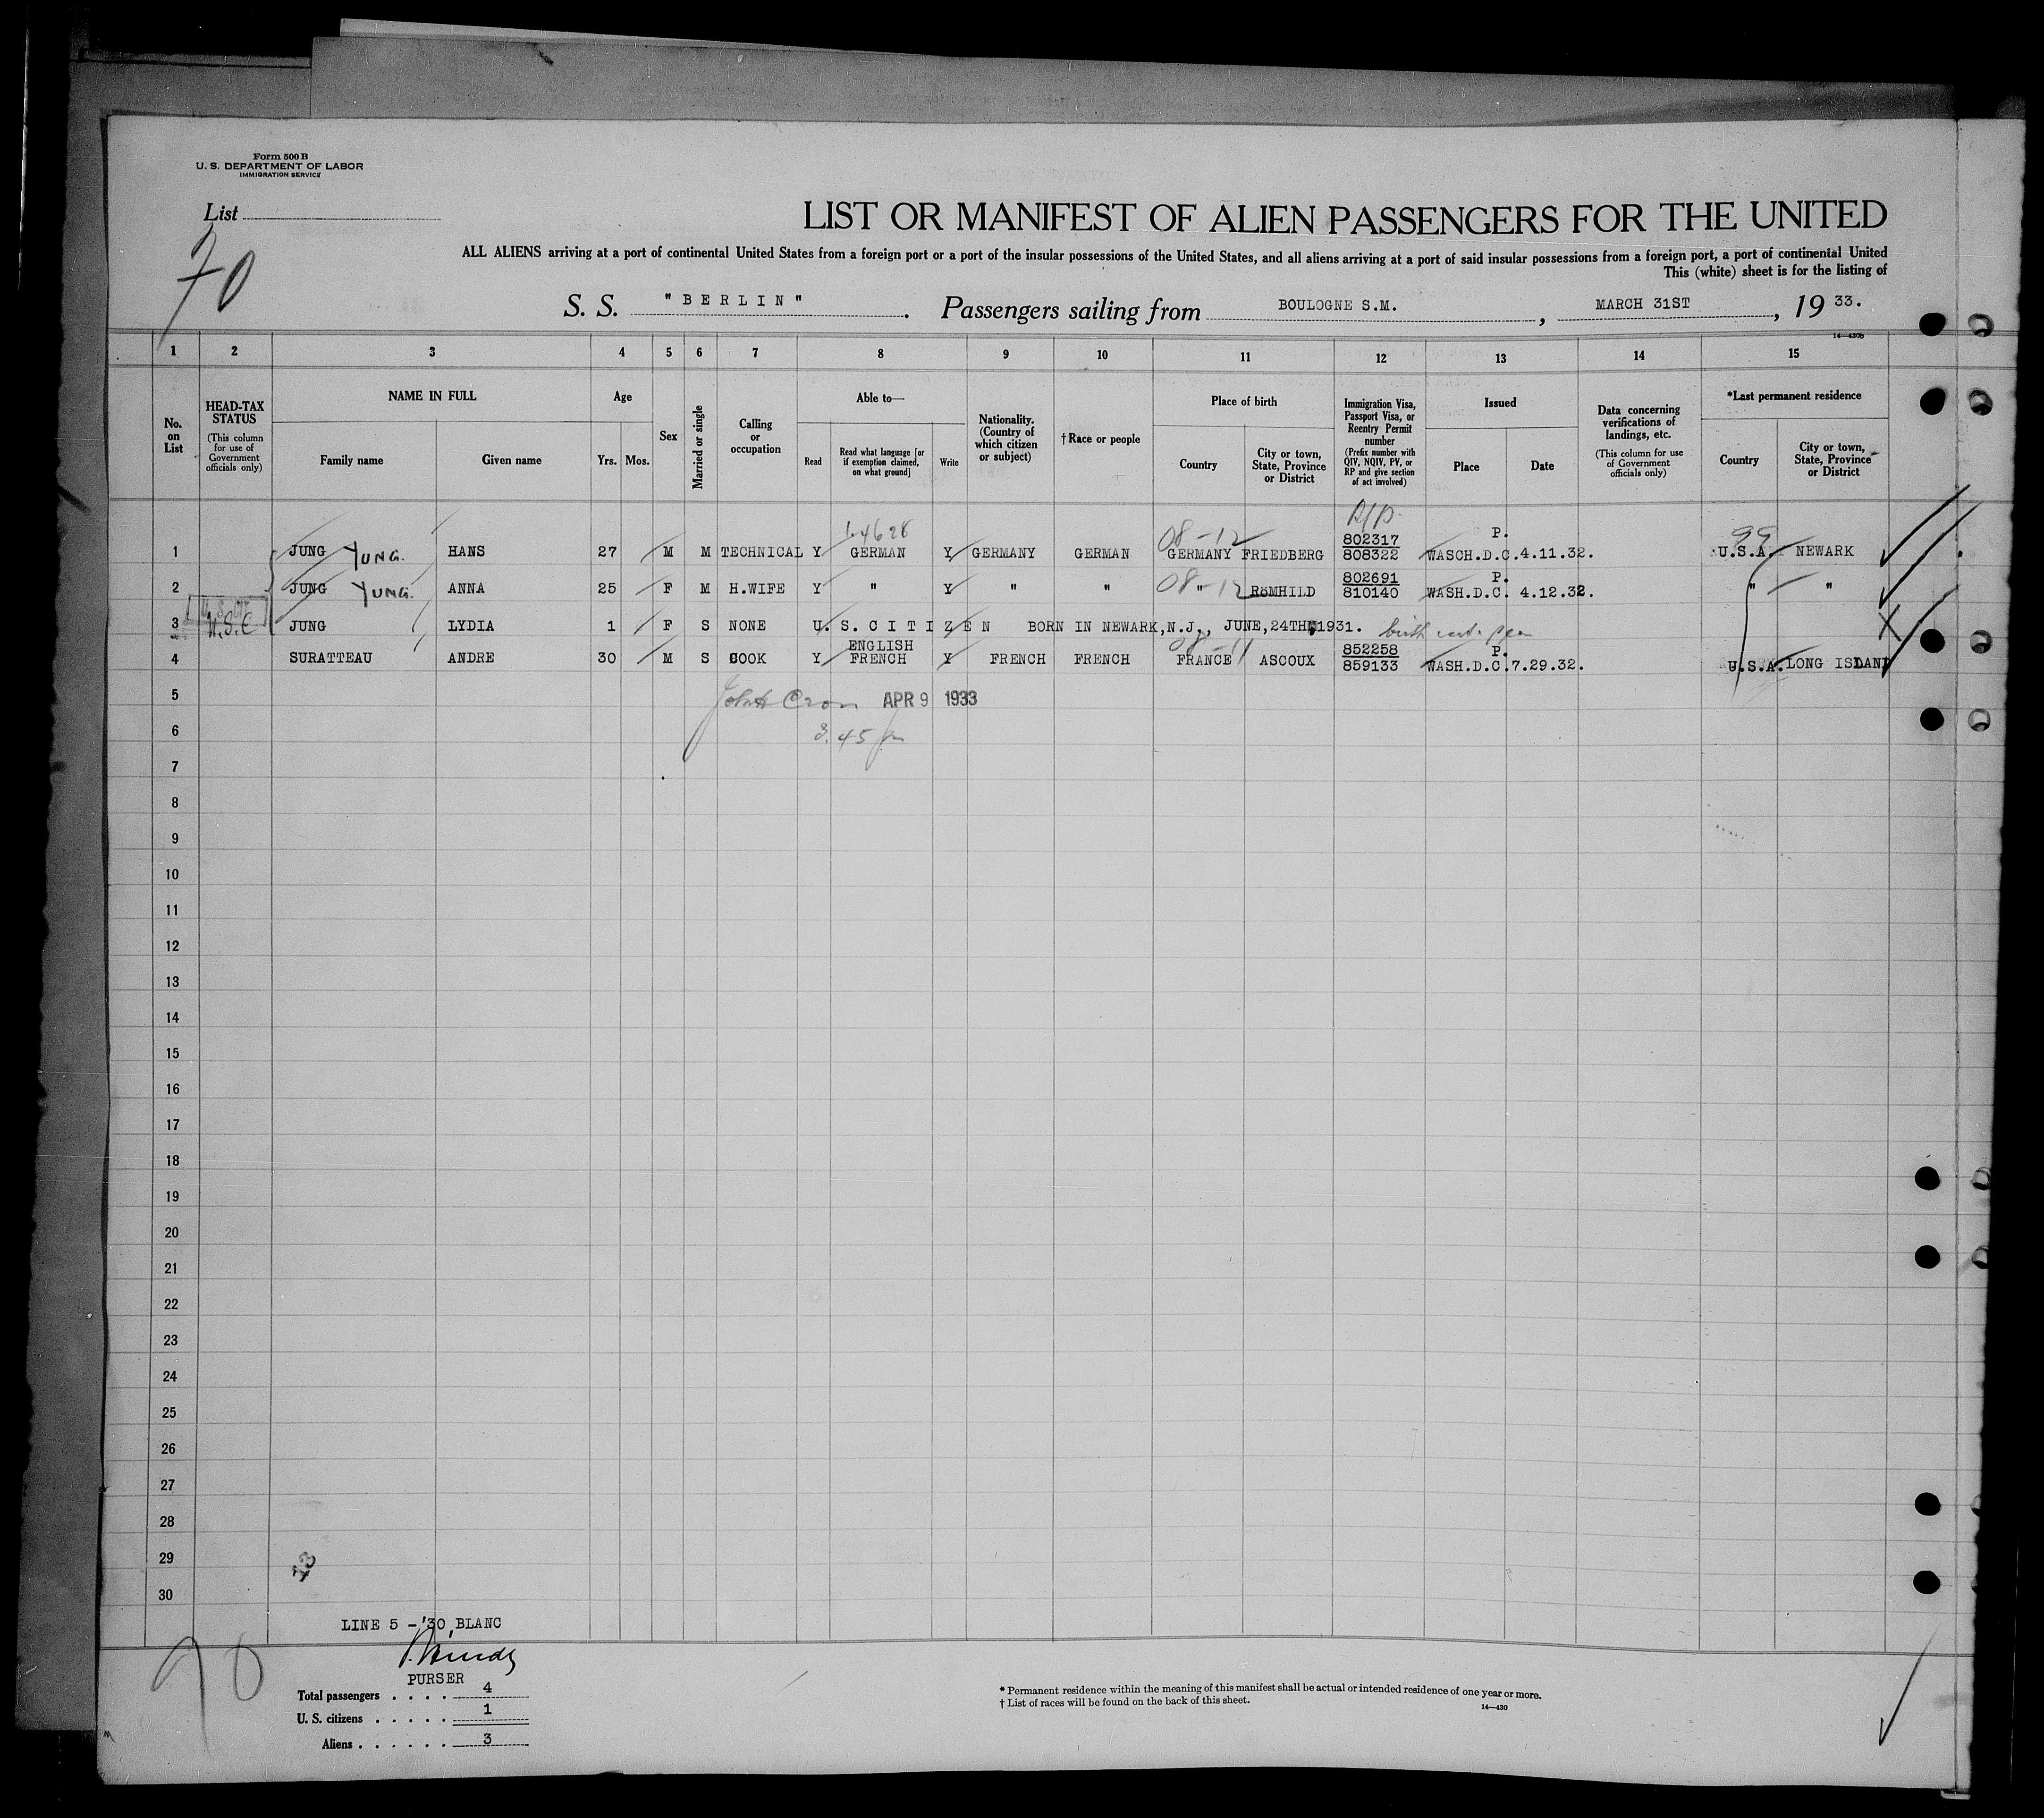 Form 500 B
U. S. DEPARTMENT OF LABOR
IMMIGRATION SERVICE
List
70
LIST OR MANIFEST OF ALIEN PASSENGERS FOR THE UNITED
ALL ALIENS arriving at a port of continental United States from a foreign port or a port of the insular possessions of the United States, and all aliens arriving at a port of said insular possessions from a foreign port, a port of continental United
This (white) sheet is for the listing of
S. S. "BERLIN". Passengers sailing from BOULOGNE S.M., MARCH 31ST, 19 33.
14—430b
1 2 3 4 5 6 7 8 9 10 11 12 13 14 15
No. on List
HEAD-TAX STATUS (This column for use of Government officials only)
NAME IN FULL
Family name Given name
Age
Yrs. Mos.
Sex
Married or single
Calling or occupation
Able to—
Read Read what language [or if exemption claimed, on what ground] Write
Nationality. (Country of which citizen or subject)
†Race or people
Place of birth
Country City or town, State, Province or District
Immigration Visa, Passport Visa, or Reentry Permit number (Prefix number with QIV, NQIV, PV, or RP and give section of act involved)
Issued
Place Date
Data concerning verifications of landings, etc. (This column for use of Government officials only)
*Last permanent residence
Country City or town, State, Province or District
08-12 R/P 99
802317 P.
1 JUNG YUNG. HANS 27 M M TECHNICAL Y GERMAN Y GERMANY GERMAN GERMANY FRIEDBERG 808322 WASCH.D.C.4.11.32. U.S.A. NEWARK
08-12 802691 P.
2 JUNG YUNG. ANNA 25 F M H.WIFE Y " Y " " " RÖMHILD 810140 WASH.D.C. 4.12.32. " "
U.S.C
3 JUNG LYDIA 1 F S NONE U.S. CITIZEN BORN IN NEWARK,N.J., JUNE,24TH,1931.
ENGLISH 08-11 852258 P. X
4 SURATTEAU ANDRE 30 M S COOK Y FRENCH Y FRENCH FRENCH FRANCE ASCOUX 859133 WASH.D.C.7.29.32. U.S.A. LONG ISLAND
5 APR 9 1933
6 3.45
7
8
9
10
11
12
13
14
15
16
17
18
19
20
21
22
23
24
25
26
27
28
29
30
LINE 5 - 30 BLANC
PURSER
Total passengers . . . . 4
U. S. citizens . . . . . 1
Aliens . . . . . . 3
* Permanent residence within the meaning of this manifest shall be actual or intended residence of one year or more.
† List of races will be found on the back of this sheet.
14—430